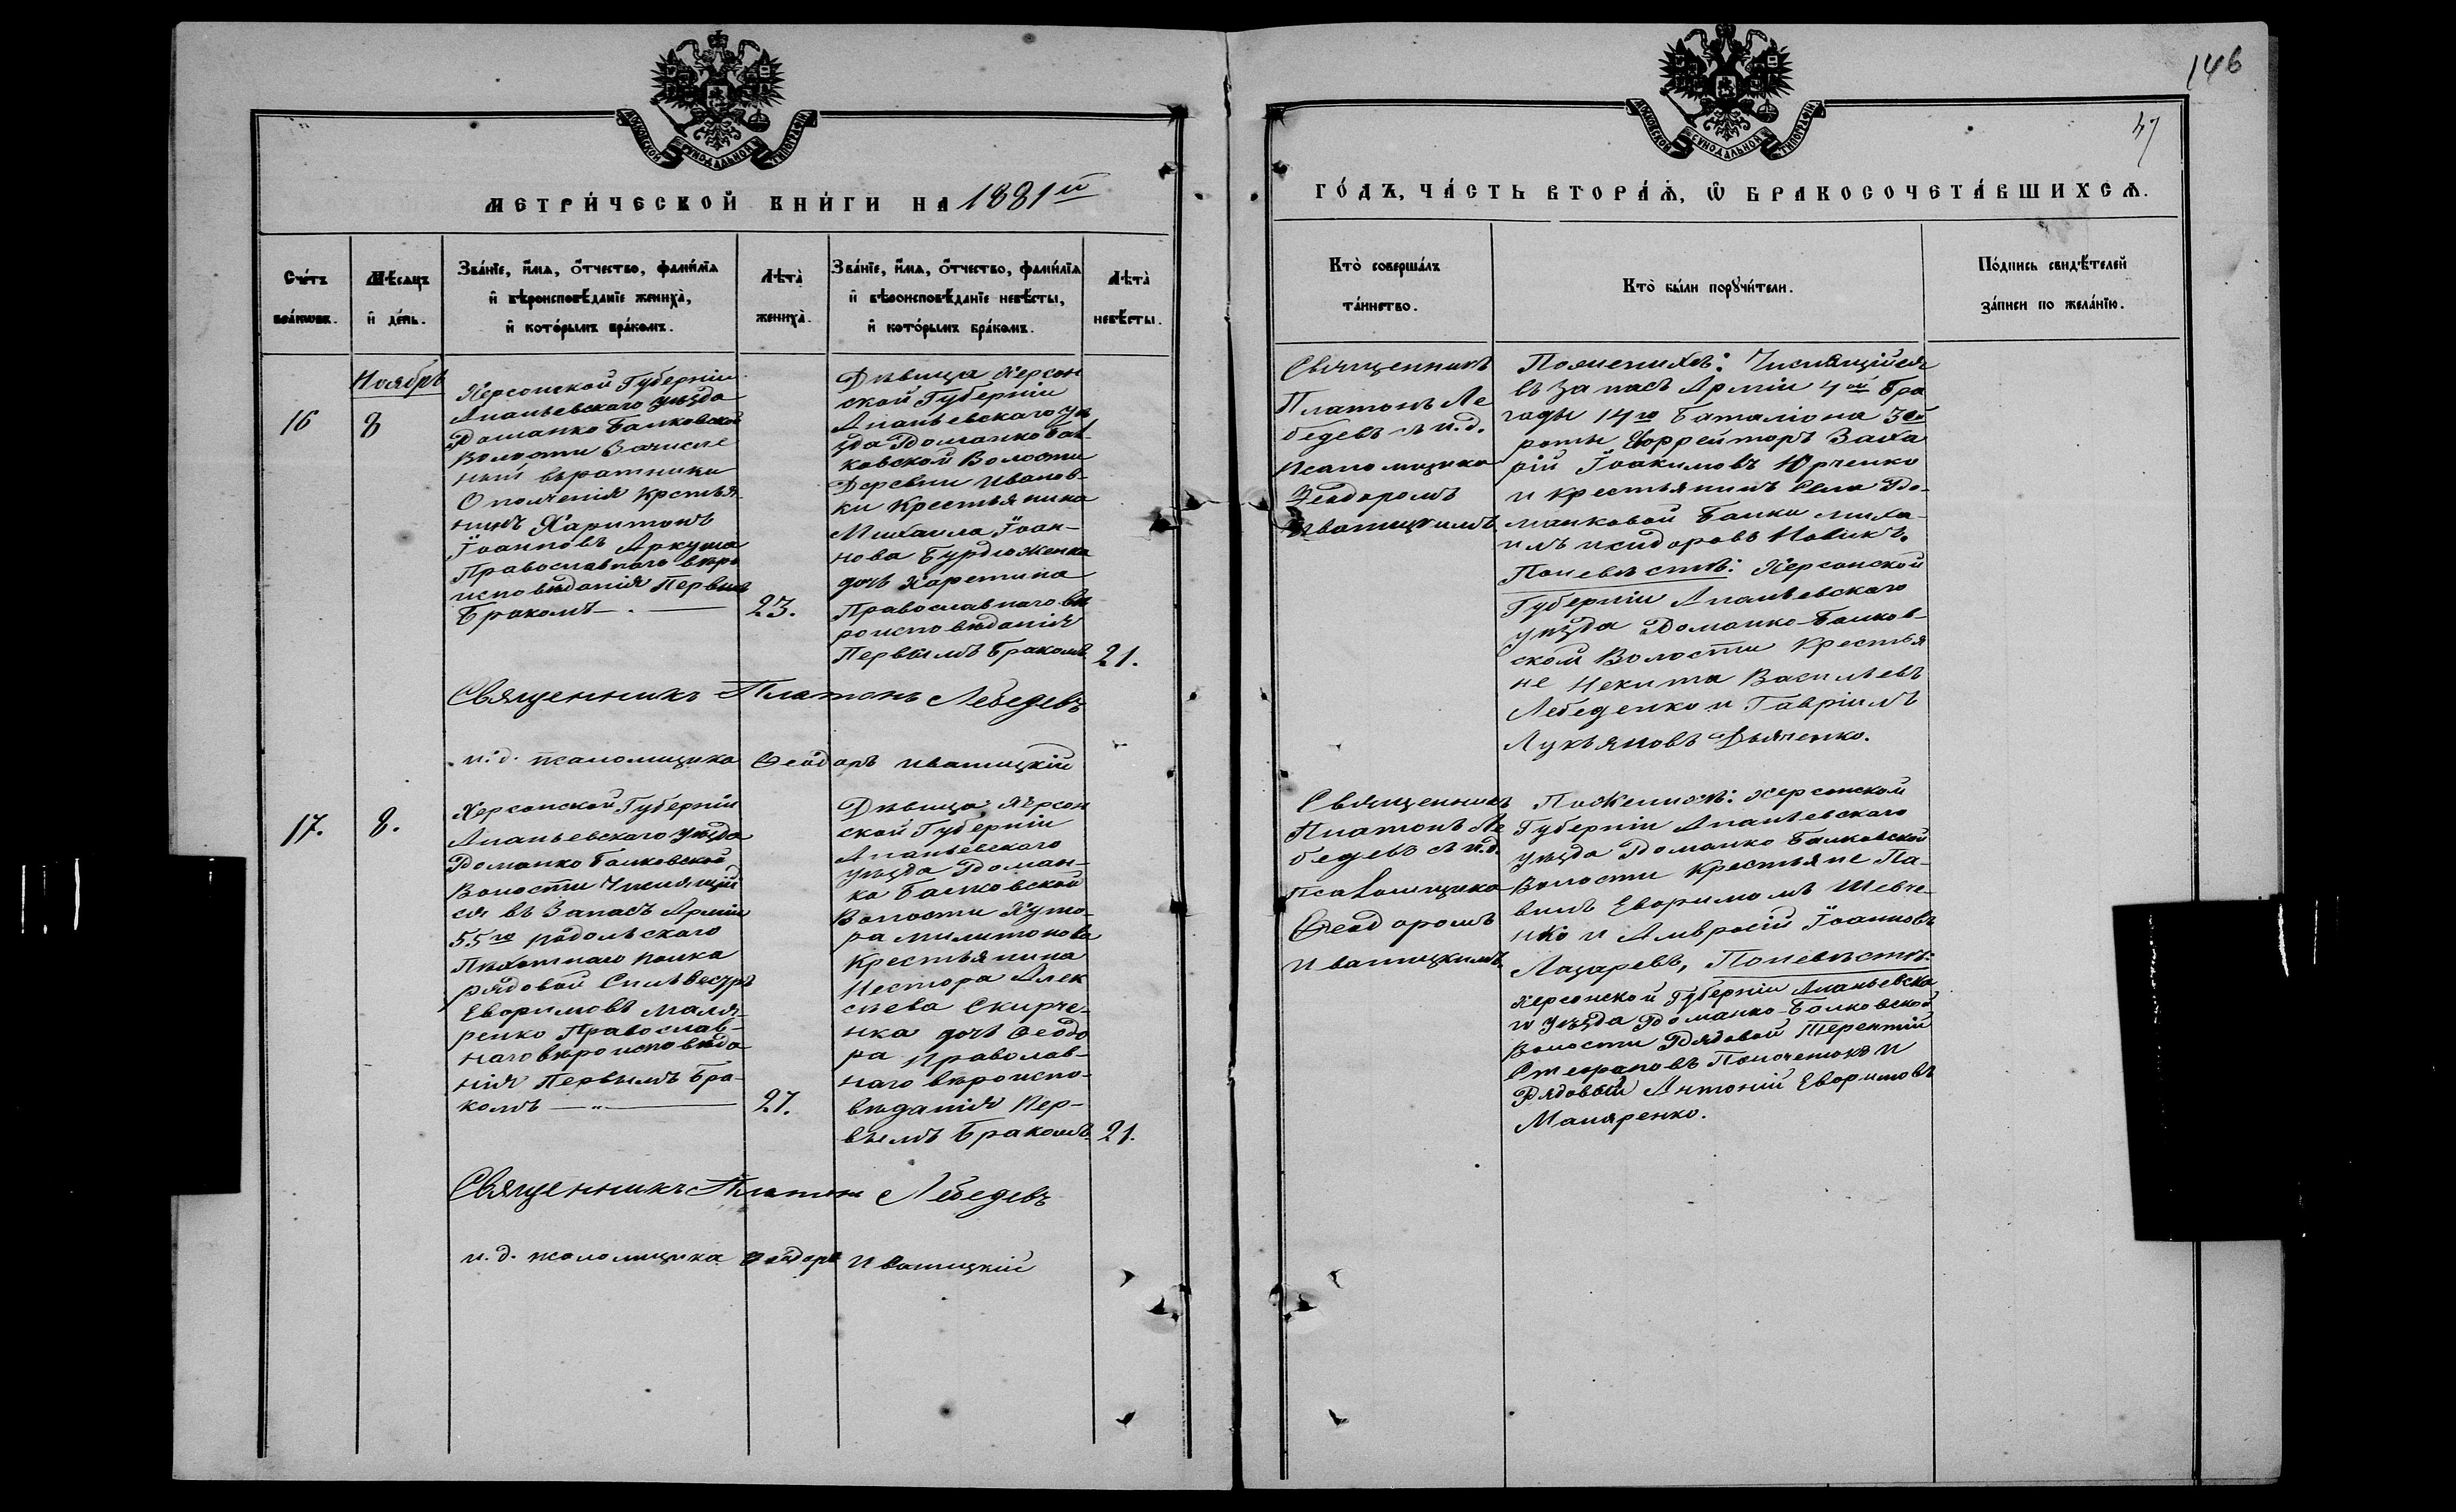 146
47
МОСКОВСКОЙ СѴНОДАЛЬНОЙ ТИПОГРАФІИ
МОСКОВСКОЙ СѴНОДАЛЬНОЙ ТИПОГРАФІИ
МЕТРИ́ЧЕСКОЙ КНИ́ГИ НА 1881й
ГО́ДЪ, ЧА́СТЬ ВТОРА́Ѧ, Ѿ БРАКОСОЧЕТА́ВШИХСѦ.
Сче́тъ
бра́ковъ.
Мѣ́сѧцъ
и҆ де́нь.
Зва́нїе, и҆́мѧ, ѻ҆́тчество, фами́лїѧ
и҆ вѣроисповѣ́данїе жениха̀,
и҆ кото́рымъ бра́комъ.
Лѣта̀
жениха̀.
Зва́нїе, и҆́мѧ, ѻ҆́тчество, фами́лїѧ
и҆ вѣроисповѣ́данїе невѣ́сты,
и҆ кото́рымъ бра́комъ.
Лѣта̀
невѣ́сты.
Кто̀ соверша́лъ
та́инство.
Кто̀ бы́ли порꙋчи́тели.
По́дпись свидѣ́телей
за́писи по жела́нїю.
Ноябрь
16
8
Херсонской Губерніи
Ананьевскаго уѣзда
Доманко Балковской
Волости Зачисле
ный въ ратники
Ополченія Крестья
нинъ Харитонъ
Іоанновъ Аркуша
Православнаго вѣро
исповѣданія Первымъ
Бракомъ
23.
Дѣвица Херсон
ской Губерніи
Ананьевскаго уѣ
зда Доманко Бал-
ковской Волости
Деревни Иванов-
ки Крестьянина
Михаила Іоан-
нова Бурдюженка
дочь Харетина
Православнаго вѣ
роисповѣданія
Первымъ Бракомъ
21.
Священникъ
Платонъ Ле
бедевъ съ и.д.
псаломщика
Ѳеодоромъ
Иваницкимъ
По женихѣ: Числящійся
въ запасѣ Арміи 4ой Бри
гады 14го Баталіона 3ей
роты Ефрейторъ Заха
рій Іоакимовъ Юрченко
и крестьянинъ Села До-
манковой Балки Миха-
илъ Исидоровъ Новикъ.
По невѣстѣ: Херсонской
Губерніи Ананьевскаго
уѣзда Доманко-Балков-
ской Волости Крестья
не Никита Васильевъ
Лебеденко и Гавріилъ
Лукьяновъ Дьяченко.
Священникъ Платонъ Лебедевъ
и. д. псаломщика Ѳеодоръ Иваницкій
17.
8.
Херсонской Губерніи
Ананьевскаго уѣзда
Доманко Балковской
Волости Числящій
ся въ Запасѣ Арміи
55го Подольскаго
Пѣхотнаго полка
рядовой Сильвестръ
Евфимовъ Маля-
ренко Православ-
наго вѣроисповѣда
нія Первымъ Бра-
комъ
27.
Дѣвица Херсон
ской Губерніи
Ананьевскаго
уѣзда Доман-
ко Балковской
Волости Хуто-
ра Милитонова
Крестьянина
Нестора Алек
сѣева Скирче-
нка дочь Ѳеодо
ра Православ-
наго вѣроиспо-
вѣданія Пер-
вымъ Бракомъ
21.
Священникъ
Платонъ Ле
бедевъ съ и.д.
Псаломщика
Ѳеодоромъ
Иваницкимъ.
По женихѣ: Херсонской
Губерніи Ананьевскаго
уѣзда Доманко Балковской
Волости Крестьяне Па-
велъ Евфимовъ Шевче-
нко и Амвросій Іоанновъ
Лазаревъ, По невѣстѣ:
Херсонской Губерніи Ананьевска
го уѣзда Доманко-Балковской
Волости Рядовой Терентій
Стефановъ и
Рядовый Антоній Евфимовъ
Маляренко.
Священникъ Платонъ Лебедевъ
и. д. псаломщика Ѳеодоръ Иваницкій